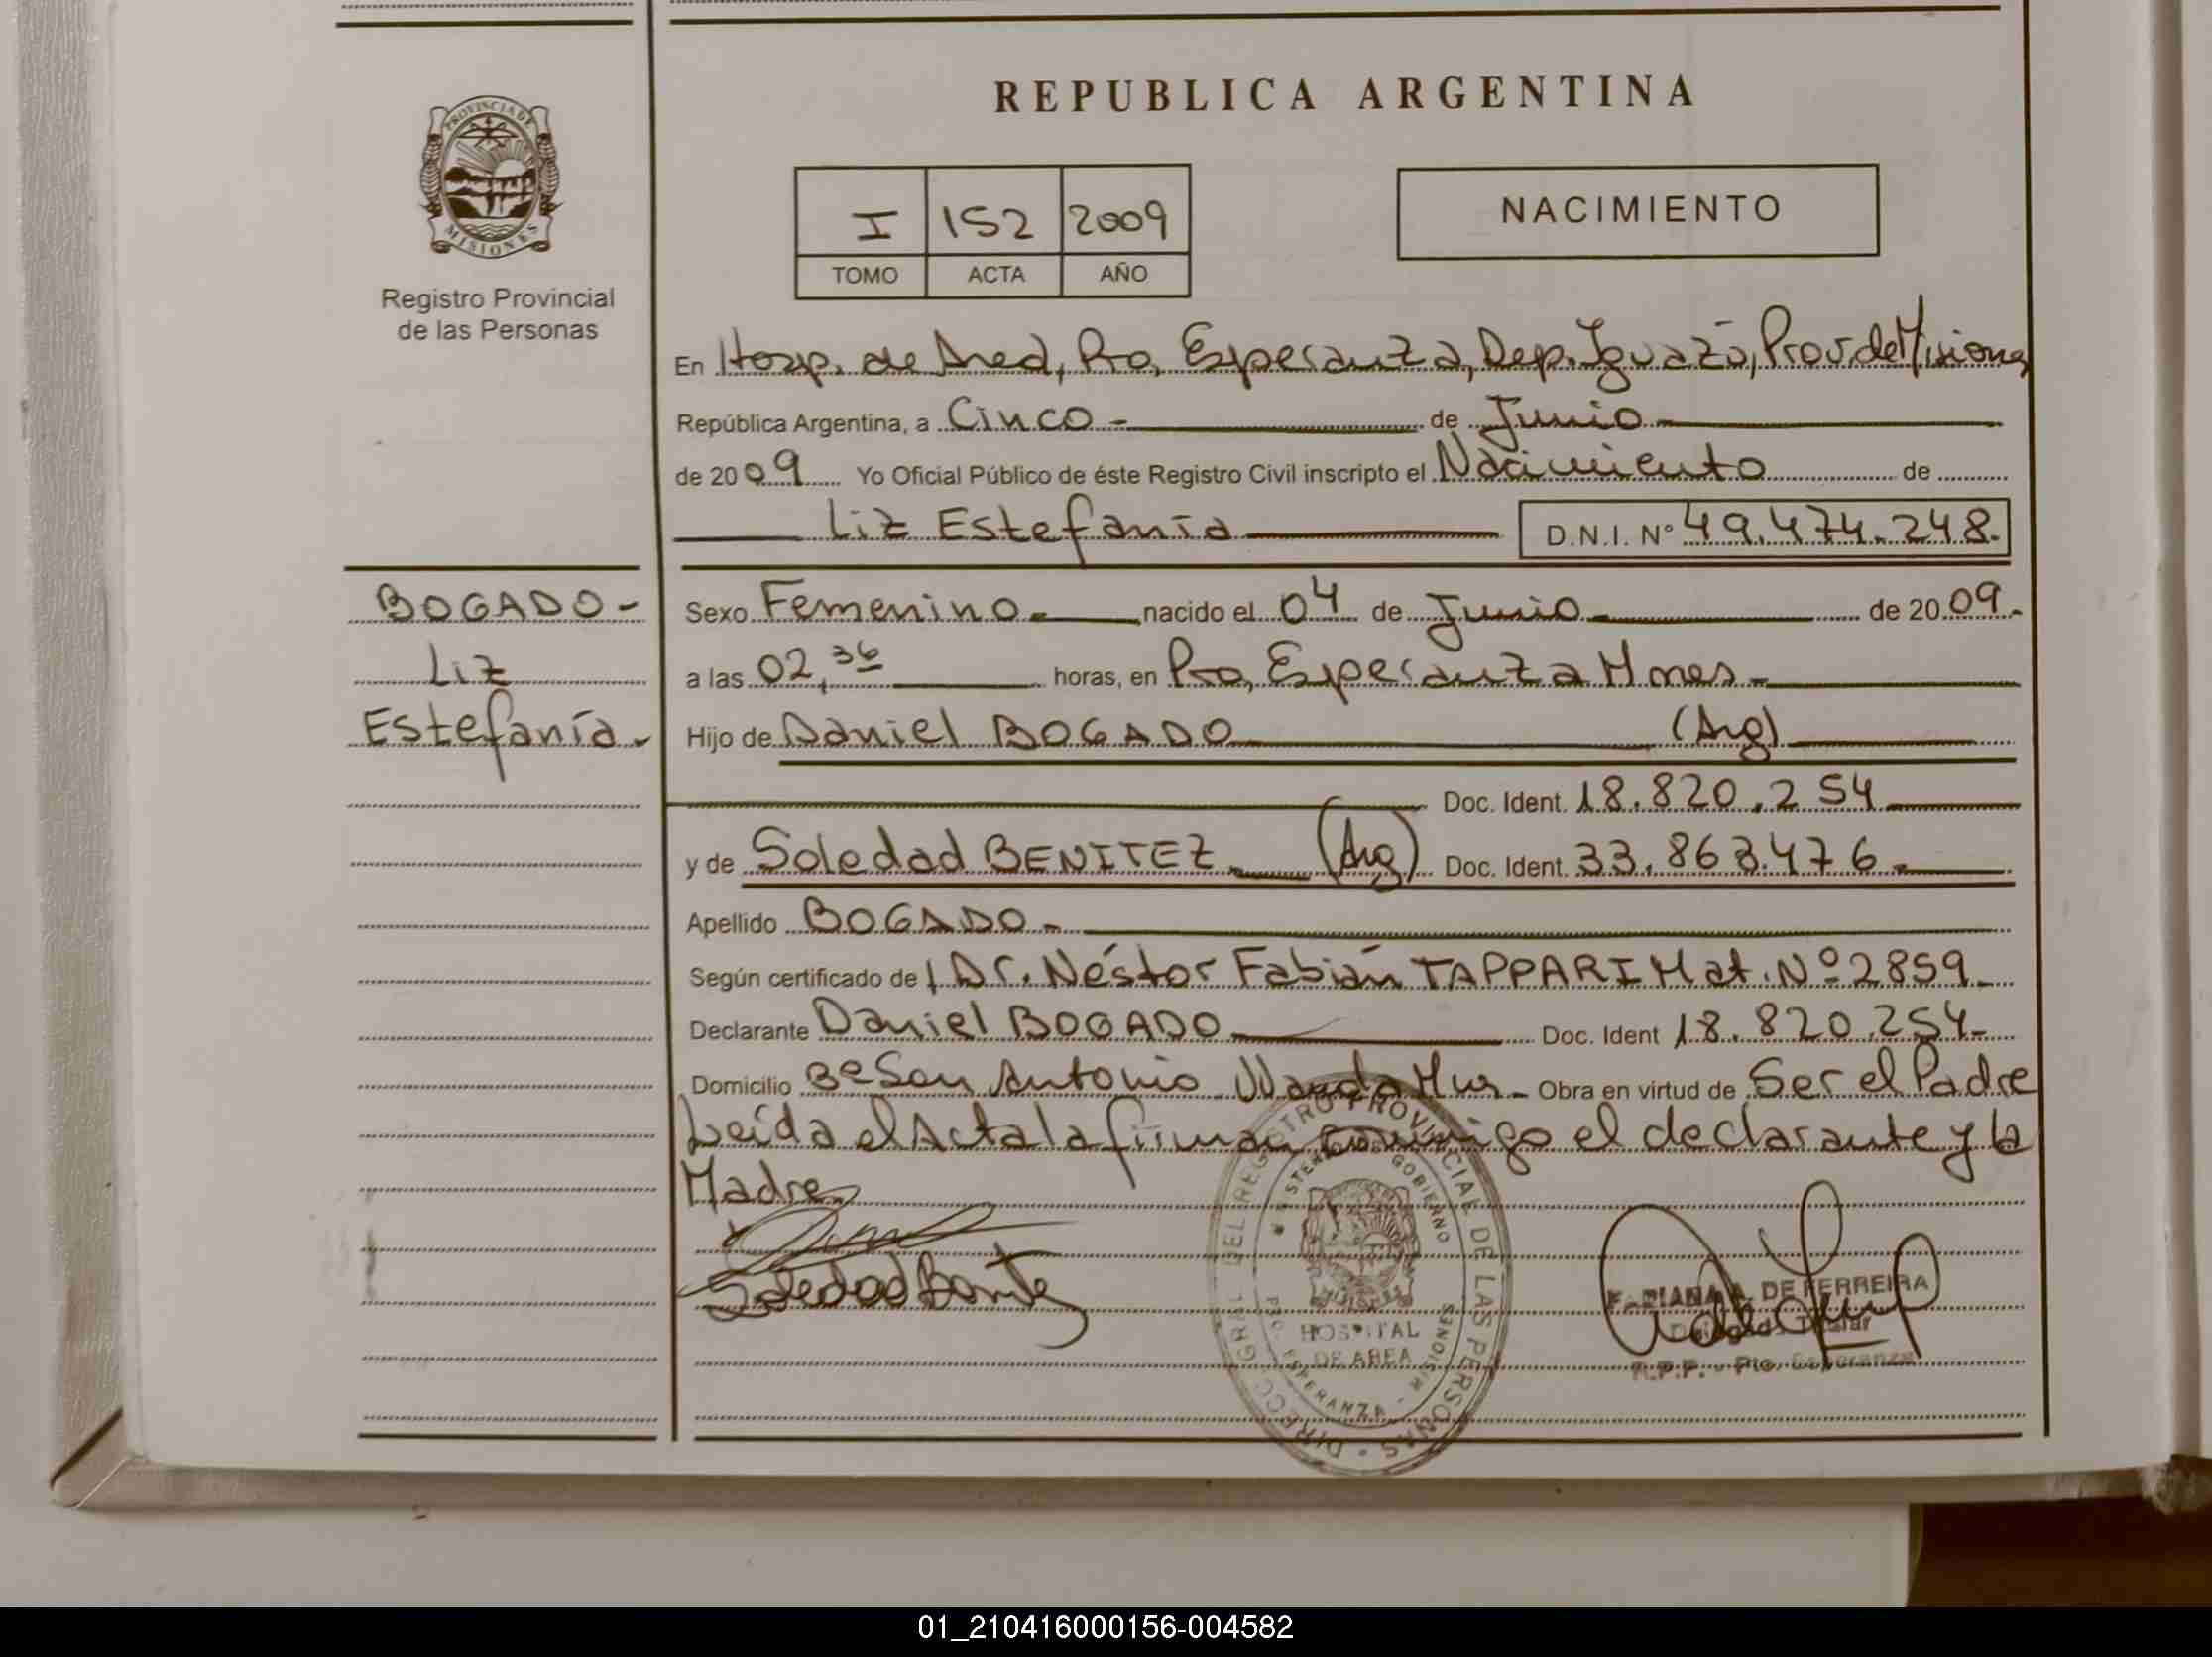 REPUBLICA ARGENTINA
PROVINCIA DE
MISIONES
Registro Provincial
de las Personas
I 152 2009
TOMO ACTA AÑO
NACIMIENTO
En Hosp. de Area, Pto, Esperanza, Dep. Iguazú, Prov. de Misiones
República Argentina, a Cinco - de Junio -
de 2009 Yo Oficial Público de éste Registro Civil inscripto el Nacimiento de
Liz Estefanía D.N.I. Nº 49.474.248.
BOGADO -
Liz
Estefanía -
Sexo Femenino - nacido el 04 de Junio - de 2009.-
a las 02,36 horas, en Pto, Esperanza Mnes -
Hijo de Daniel BOGADO (Arg)
Doc. Ident. 18.820.254
y de Soledad BENITEZ - (Arg) Doc. Ident. 33.863.476 -
Apellido BOGADO -
Según certificado de l Dr. Néstor Fabián TAPPARI Mat. Nº 2859 -
Declarante Daniel BOGADO Doc. Ident 18.820.254 -
Domicilio Bº San Antonio Wanda Mns - Obra en virtud de Ser el Padre
Leída el Acta la firman conmigo el declarante y la
Madre
Soledad Benitez
DIRECC. GRAL. DEL REGISTRO PROVINCIAL DE LAS PERSONAS
MINISTERIO DE GOBIERNO
HOSPITAL
DE AREA
PTO. ESPERANZA - MISIONES
FABIANA A. DE FERREIRA
Delegada Titular
R.P.P. - Pto. Esperanza
01_210416000156-004582